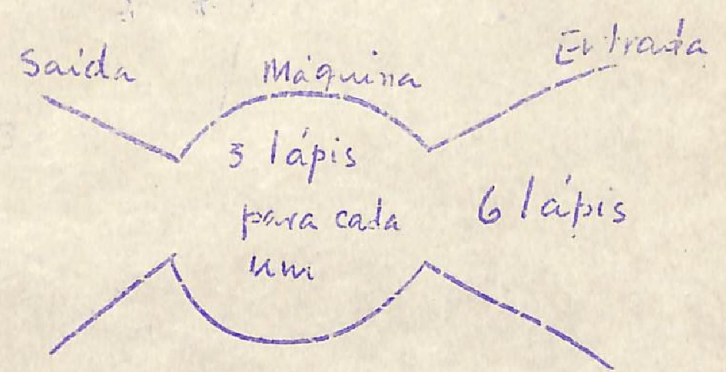 Saída Máquina Entrada
3 lápis
para cada 6 lápis
um